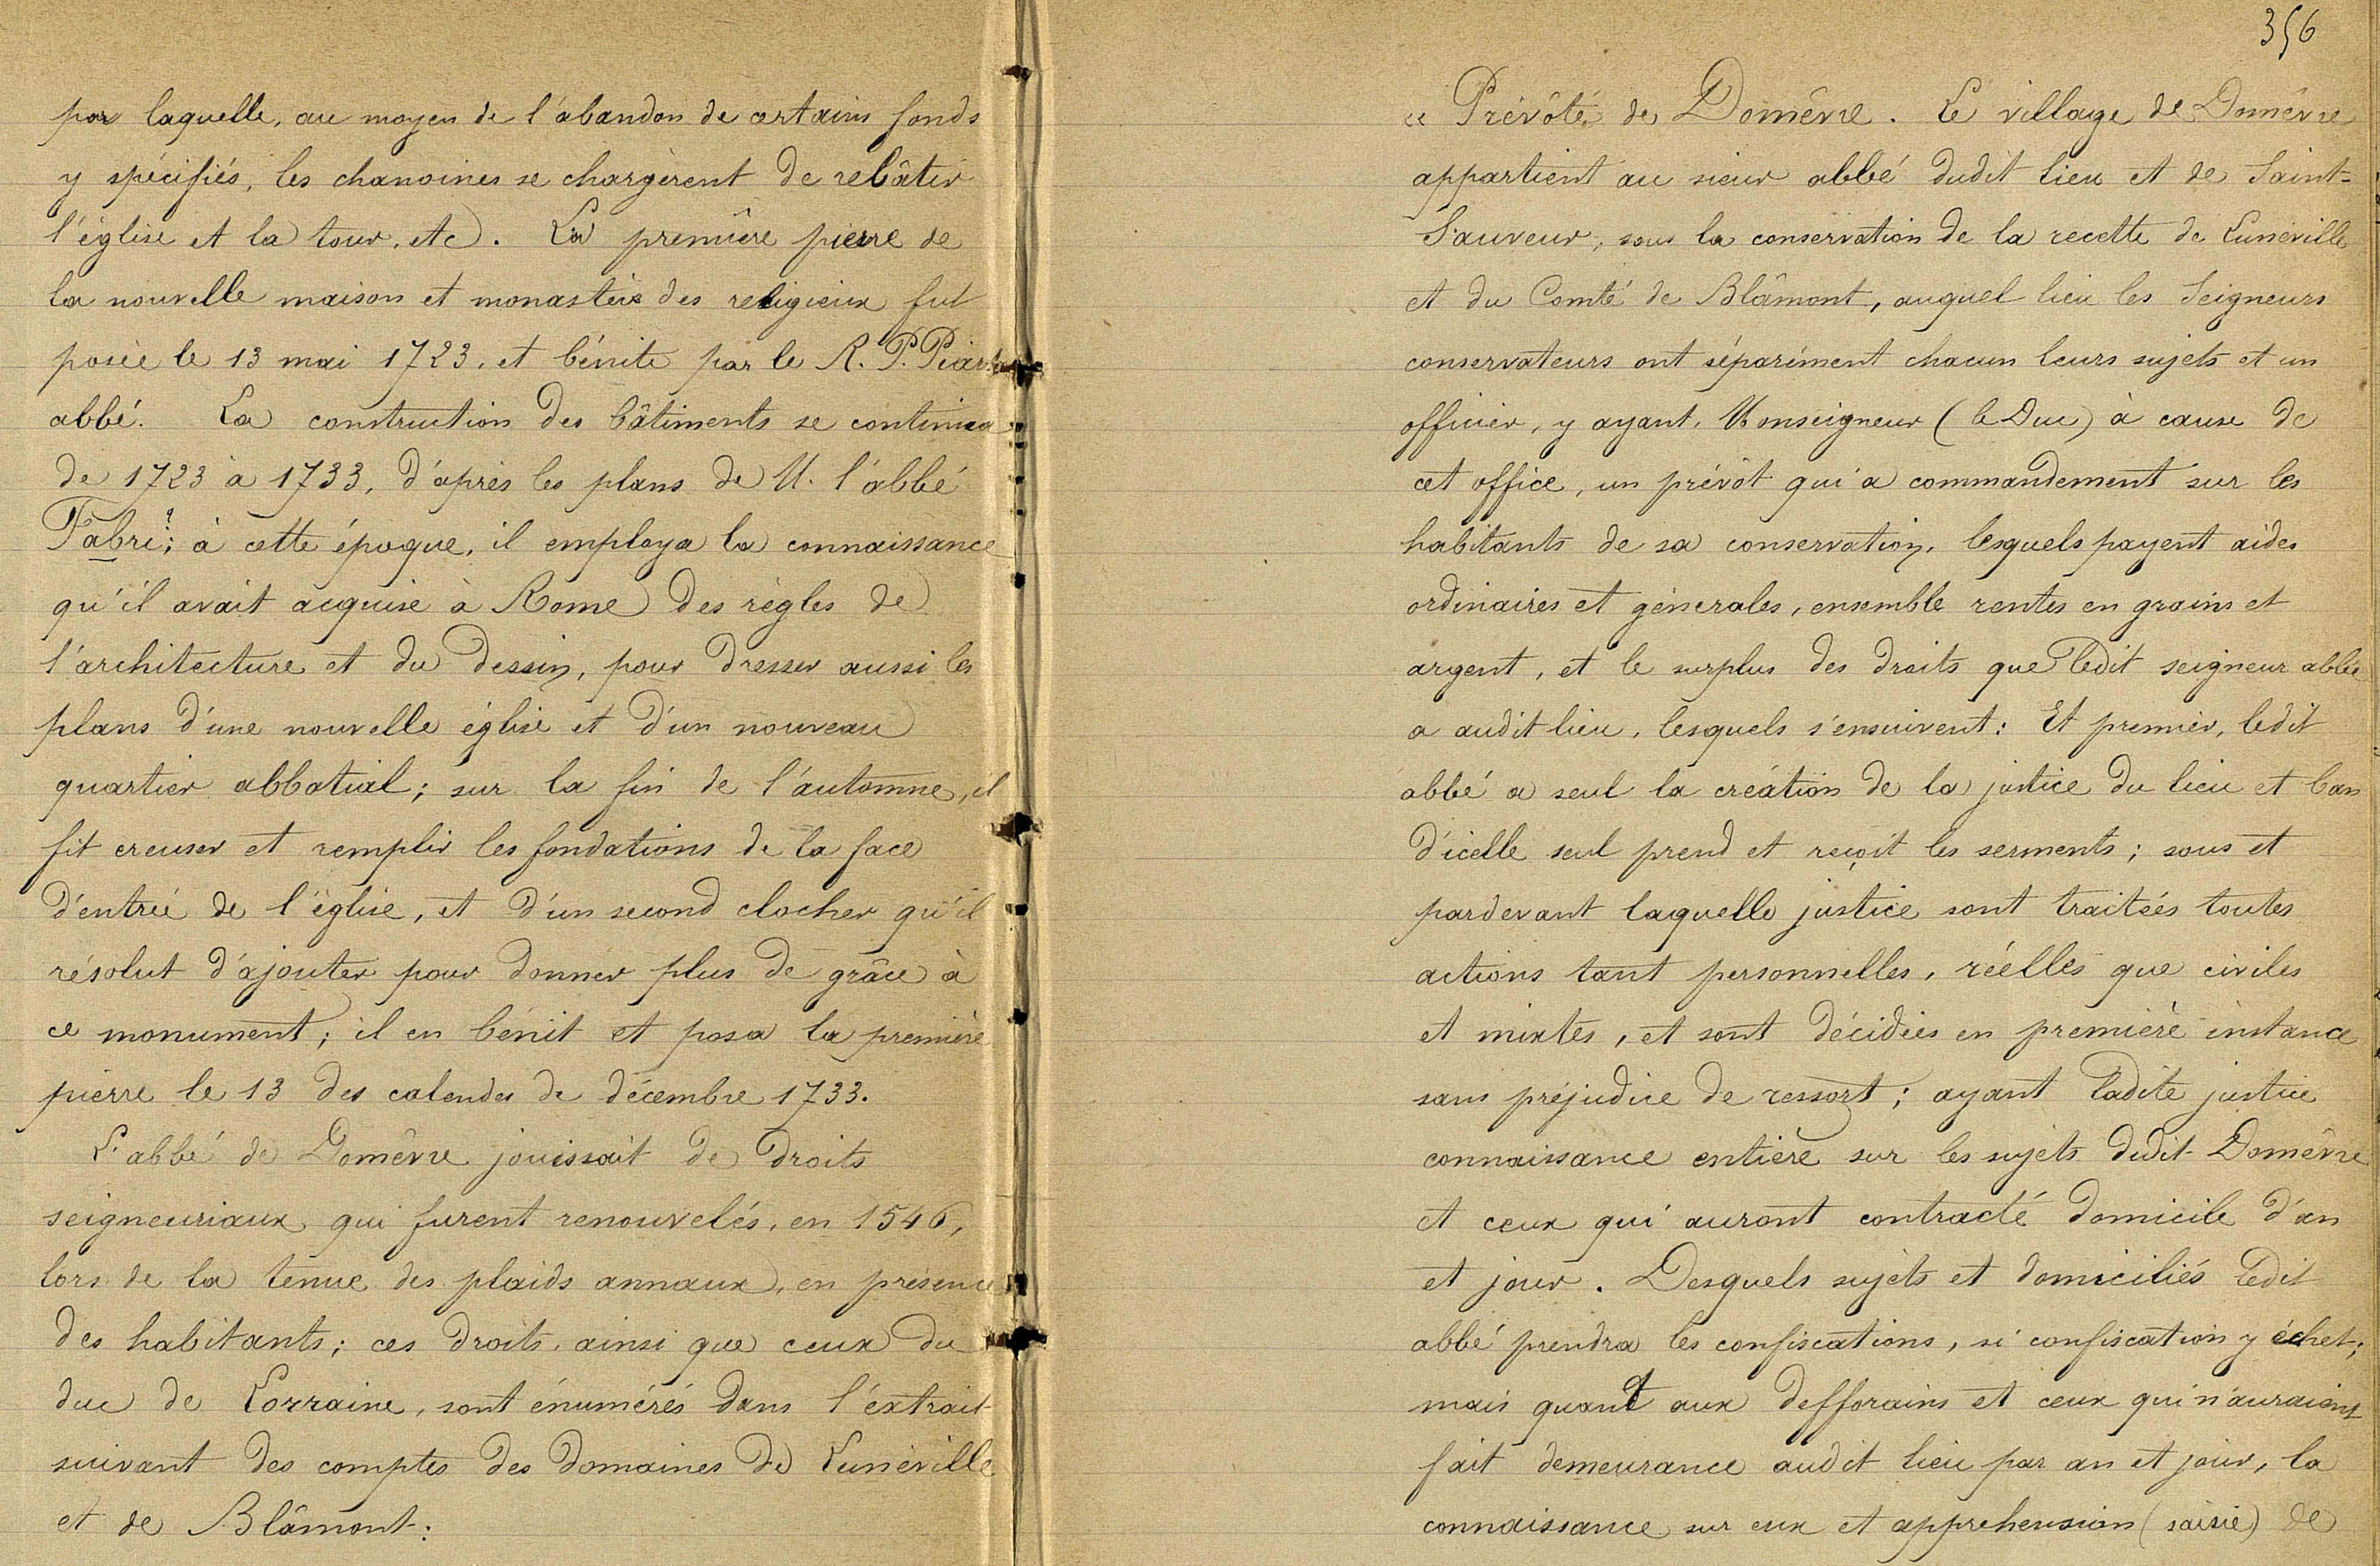 par laquelle, au moyen de l'abandon de certains fonds
y spécifiés, les chanoines se chargèrent de rebâtir
l'église et la tour, etc. La première pierre de
la nouvelle maison et monastère des religieux fut
posée le 13 mai 1723, et bénite par le R. P. Piart
abbé. La construction des bâtiments se continua
de 1723 à 1733, d'après les plans de M. l'abbé
Fabri ?; à cette époque, il employa la connaissance
qu'il avait acquise à Rome des règles de
l'architecture et du dessin, pour dresser aussi les
plans d'une nouvelle église et d'un nouveau
quartier abbatial; sur la fin de l'automne, il
fit creuser et remplir les fondations de la face
d'entrée de l'église, et d'un second clocher qu'il
résolut d'ajouter pour donner plus de grâce à
ce monument; il en bénit et posa la première
pierre le 13 des calendes de décembre 1733.
L'abbé de Domêvre jouissait de droits
seigneuriaux qui furent renouvelés, en 1546,
lors de la tenue des plaids annaux, en présence
des habitants; ces droits, ainsi que ceux du
duc de Lorraine, sont énumérés dans l'extrait
suivant des comptes des domaines de Lunéville
et de Blâmont:
356
« Prévôté de Domêvre. Le village de Domêvre
appartient au sieur abbé dudit lieu et de Saint-
Sauveur, sous la conservation de la recette de Lunéville
et du Comté de Blâmont, auquel lieu les Seigneurs
conservateurs ont séparément chacun leurs sujets et un
officier, y ayant, Monseigneur (le Duc) à cause de
cet office, un prévôt qui a commandement sur les
habitants de sa conservation, lesquels payent aides
ordinaires et générales, ensemble rentes en grains et
argent, et le surplus des droits que ledit seigneur abbé
a audit lieu, lesquels s'ensuivent: Et premier, ledit
abbé a seul la création de la justice du lieu et ban
d'icelle seul prend et reçoit les serments; sous et
pardevant laquelle justice sont traitées toutes
actions tant personnelles, réelles que civiles
et mixtes, et sont décidées en première instance
sans préjudice de ressort; ayant ladite justice
connaissance entière sur les sujets dudit Domêvre
et ceux qui auront contracté domicile d'an
et jour. Desquels sujets et domiciliés ledit
abbé prendra les confiscations, si confiscation y échet;
mais quant aux defforains et ceux qui n'auraient
fait demeurance audit lieu par an et jour, la
connaissance sur eux et appréhension (saisie) de